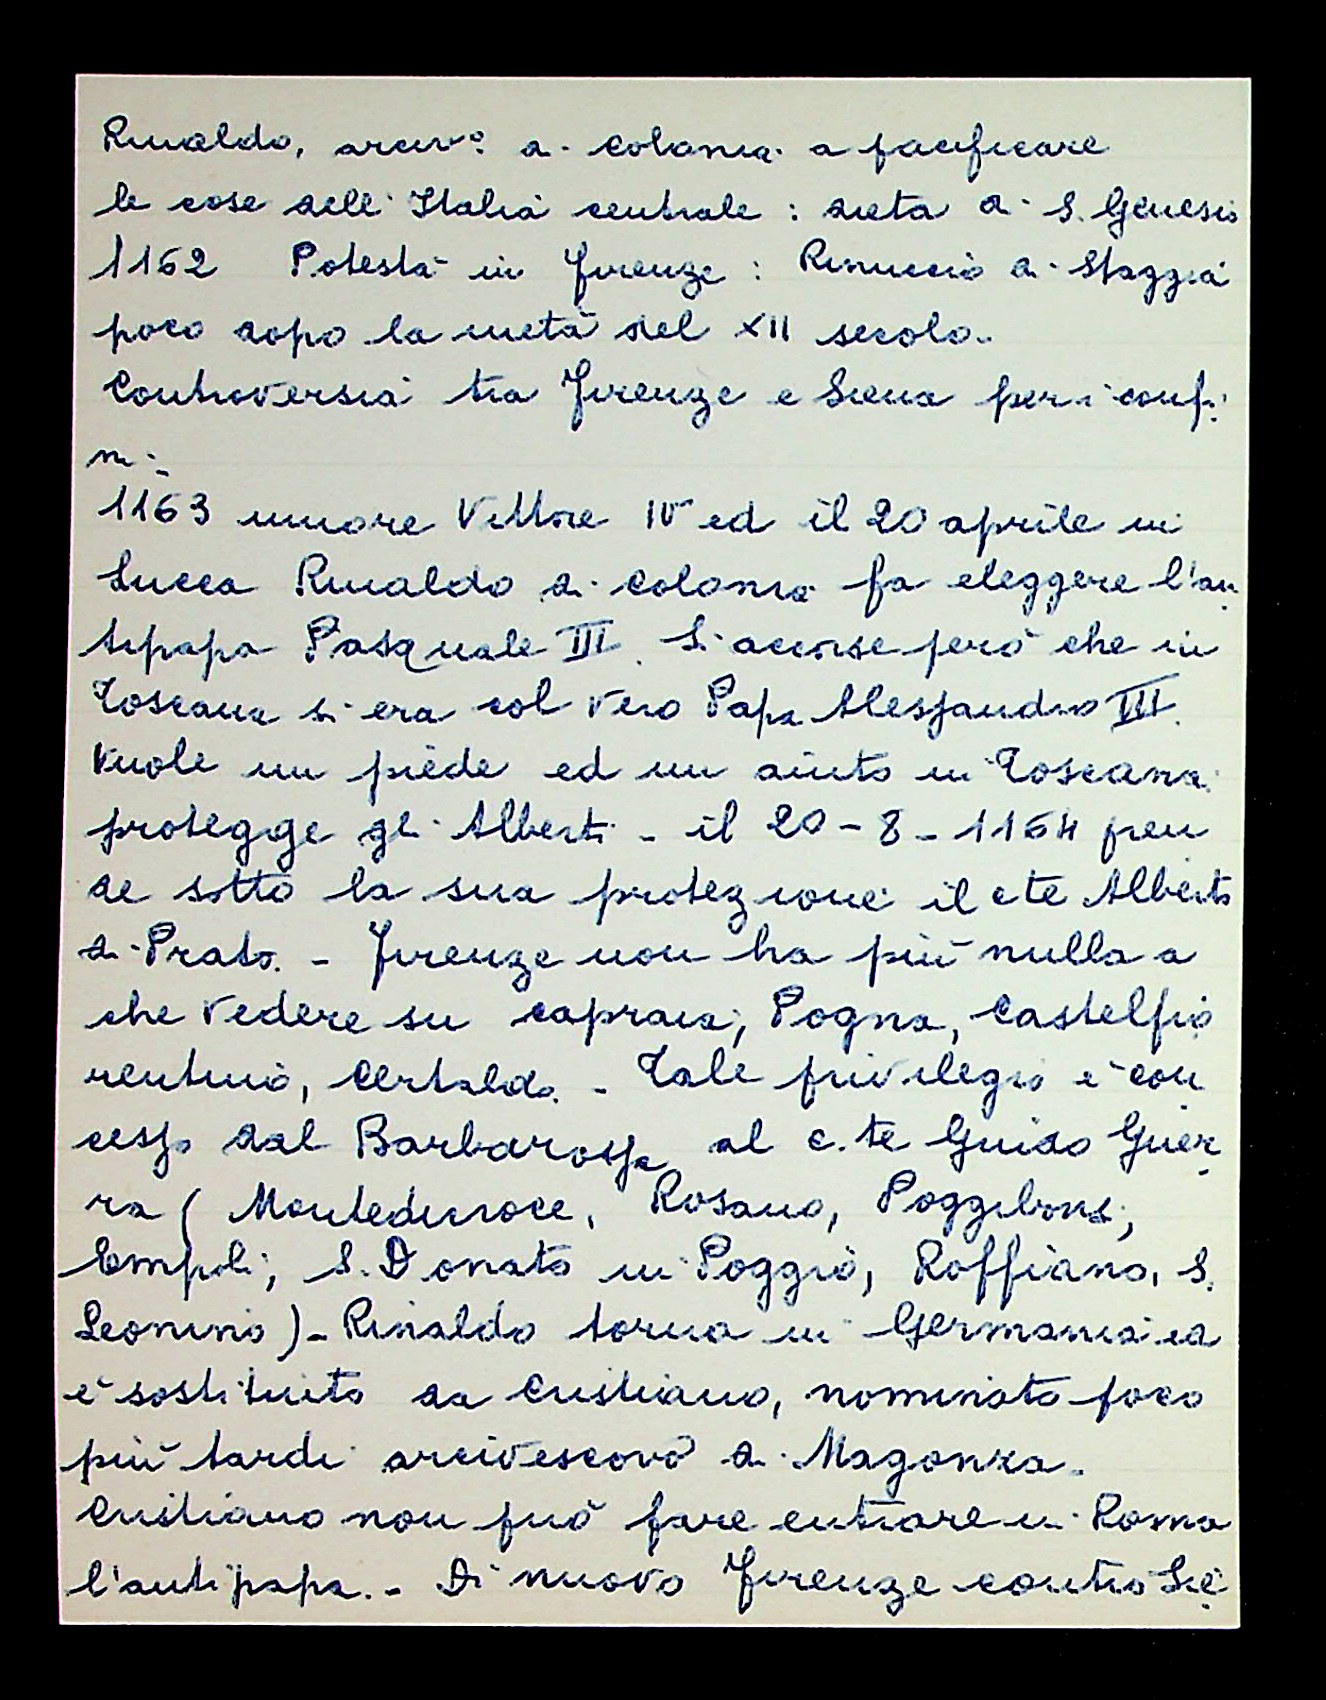 Rinaldo, arciv.º di Colonia a pacificare
le cose dell'Italia centrale: dieta di S. Genesio
1162 Potestà in Firenze: Rinuccio di Staggia
poco dopo la metà del XII secolo.
Controversia tra Firenze e Siena per i confi
ni.
1163 muore Vittore IV ed il 20 aprile in
Lucca Rinaldo di Colonia fa eleggere l'an
tipapa Pasquale III. Si accorse però che in
Toscana si era col vero Papa Alessandro III.
Vuole un piede ed un aiuto in Toscana:
protegge gli Alberti - il 20-8-1164 pren
de sotto la sua protezione il cte Alberto
di Prato. - Firenze non ha più nulla a
che vedere su Capraia, Pogna, Castelfio
rentino, Certaldo. - Tale privilegio è con
cesso dal Barbarossa al c.te Guido Guer
ra (Montedicroce, Rosano, Poggibonsi,
Empoli, S. Donato in Poggio, Roffiano, S.
Leonino) - Rinaldo torna in Germania ed
è sostituito da Cristiano, nominato poco
più tardi arcivescovo di Magonza.
Cristiano non può fare entrare in Roma
l'antipapa. - Di nuovo Firenze contro Sie